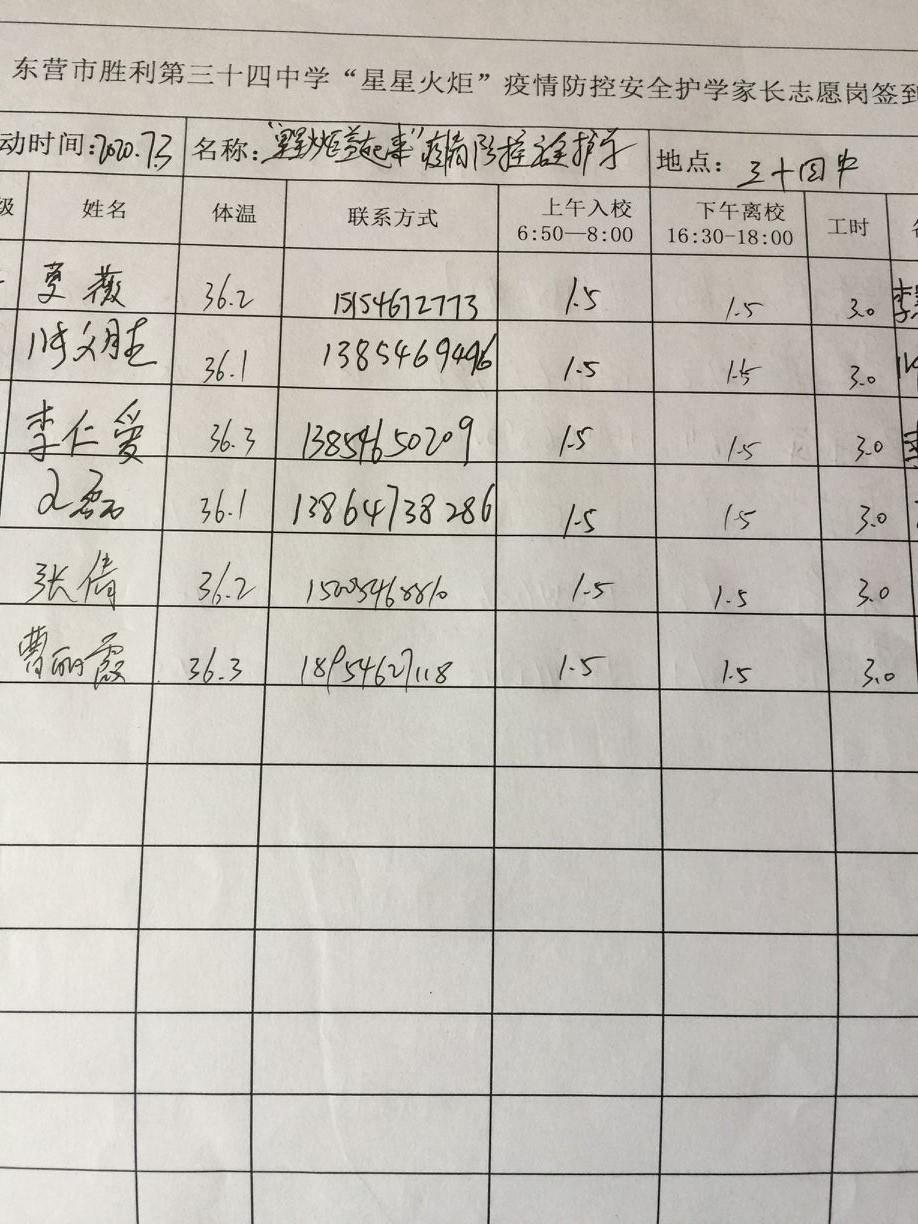 东营市胜利第三十四中学“星星火炬”疫情防控安全护学家长志愿岗签到
动时间:2020.7.3 名称:“星星火炬益起来”疫情防控安全护学 地点: 三十四中
级 姓名 体温 联系方式 上午入校 6:50—8:00 下午离校 16:30-18:00 工时
夏薇 36.2 15154672773 1.5 1.5 3.0 李
陈文胜 36.1 1385469496 1.5 1.5 3.0
李仁爱 36.3 13854650209 1.5 1.5 3.0
磊 36.1 13864738286 1.5 1.5 3.0
张倩 36.2 1.5 1.5 3.0
曹丽霞 36.3 18954627118 1.5 1.5 3.0